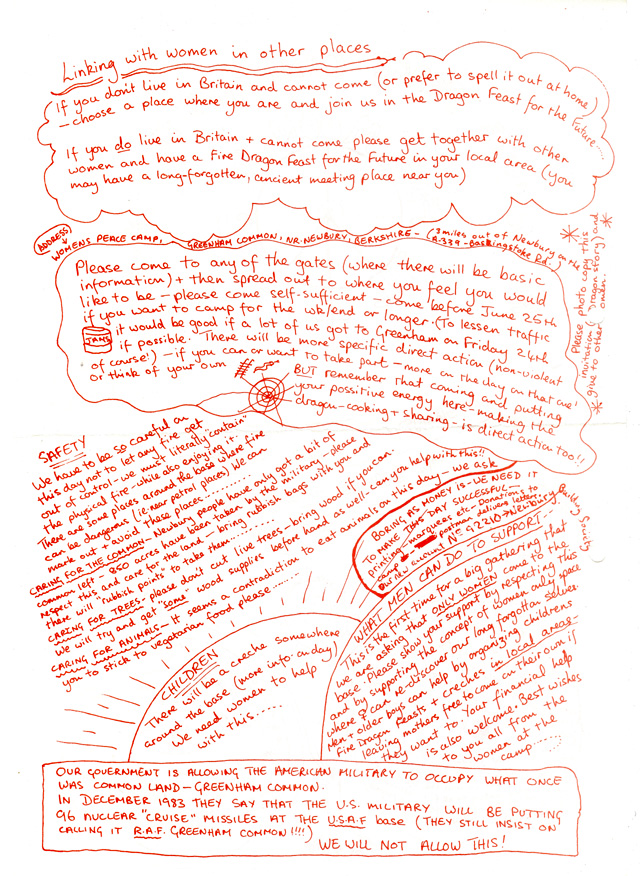 Linking with women in other places
If you don't live in Britain and cannot come (or prefer to spell it out at home)
- choose a place where you are and join us in the Dragon Feast for the Future....
If you do live in Britain + cannot come please get together with other
women and have a Fire Dragon Feast for the Future in your local area (you
may have a long-forgotten, ancient meeting place near you)
ADDRESS
WOMENS PEACE CAMP, GREENHAM COMMON, NR. NEWBURY, BERKSHIRE - (2 miles out of Newbury on the
A.339 - Basingstoke Rd.)
Please come to any of the gates (where there will be basic
information) + then spread out to where you feel you would
like to be - please come self-sufficient - come before June 25th
if you want to camp for the wk/end or longer. (To lessen traffic
JAMS
it would be good if a lot of us got to Greenham on Friday 24th
if possible. There will be more specific direct action (non-violent
of course!) - if you can or want to take part - more on the day on that one!
or think of your own
BUT remember that coming and putting
your possitive energy here - making the
dragon - cooking + sharing - is direct action too!!
Please photo copy this
invitation (+ Dragon story), and
give to other women.
SAFETY
We have to be so careful on
this day not to let any fire get
out of control - we must literally "contain"
the physical fire - while also enjoying it.
There are some places around the base where fire
can be dangerous (ie. near petrol places) We can
mark out + avoid these places..........
CARING FOR THE COMMON - Newbury people have only got a bit of
common left - 850 acres have been taken by the military - please
respect this and care for the land - bring rubbish bags with you and
there will "rubbish points" to take them........
CARING FOR TREES - please don't cut live trees - bring wood if you can.
We will try and get "some" wood supplies before hand as well - can you help with this!!
CARING FOR ANIMALS - It seems a contradiction to eat animals on this day - we ask
you to stick to vegetarian food please......
BORING AS MONEY IS - WE NEED IT
TO MAKE THIS DAY SUCCESSFUL -
printing - marquees etc - Donations to
camp postman delivers letters.
CHILDREN
There will be a creche somewhere
around the base (more info: on day)
We need women to help
with this......
WHAT MEN CAN DO TO SUPPORT -
This is the first time for a big gathering that
we are asking that ONLY WOMEN come to the
base. Please show your support by respecting this
and by supporting the concept of women only space
where we can re-discover our long forgotten selves.
Men + older boys can help by organizing childrens
Fire Dragon Feasts + creches in local areas -
leaving mothers free to come on their own if
they want to. Your financial help
is also welcome. Best wishes
to you all from the
women at the
camp......
OUR GOVERNMENT IS ALLOWING THE AMERICAN MILITARY TO OCCUPY WHAT ONCE
WAS COMMON LAND - GREENHAM COMMON.
IN DECEMBER 1983 THEY SAY THAT THE U.S. MILITARY WILL BE PUTTING
96 NUCLEAR "CRUISE" MISSILES AT THE U.S.A.F BASE (THEY STILL INSIST ON
CALLING IT R.A.F. GREENHAM COMMON !!!!)
WE WILL NOT ALLOW THIS!